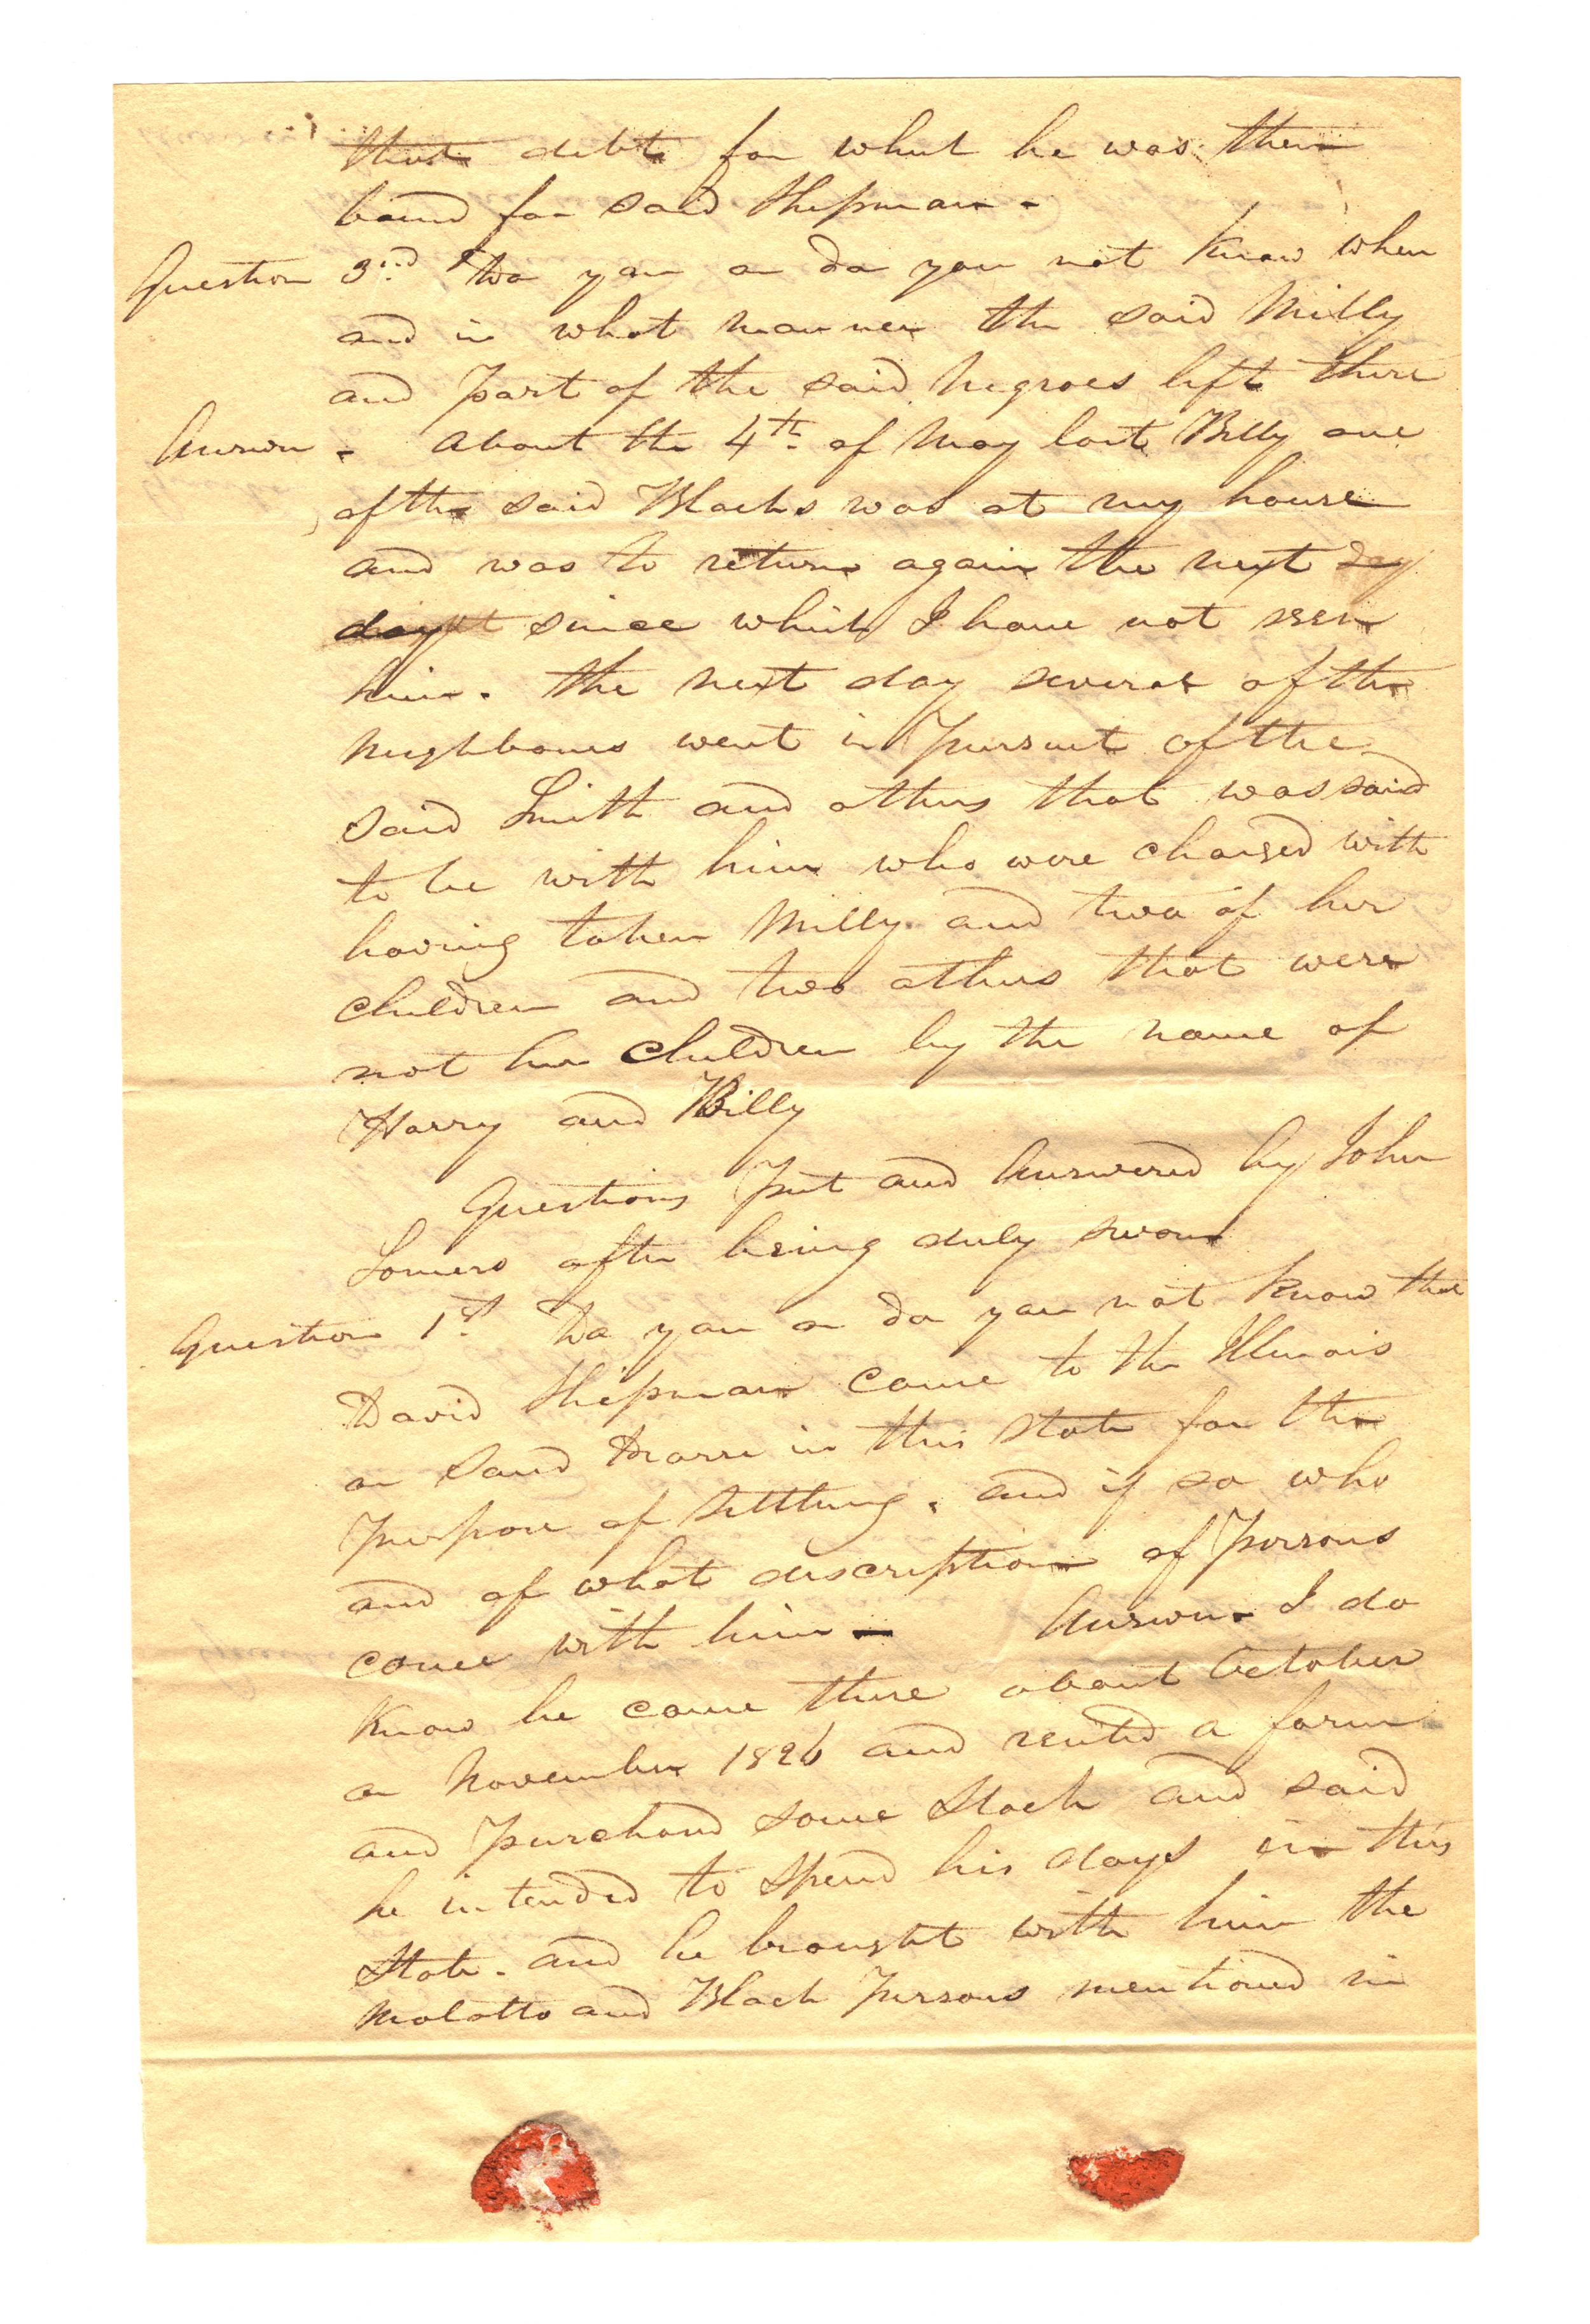 that debt for what he was then
bound for said Shipman.
Question 3rd Do you or do you not know when
and in what manner the said Milly
and part of the said Negroes left there
Answer. About the 4th of May last Billy one
of the said Blacks was at my house
and was to return again the next day
since which I have not seen
him. the next day several of the
neighbours went in Pursuit of the
said Smith and others that was said
to be with him who were charged with
having taken Milly and two of her
children and two others that were
not her Children by the name of
Harry and Billy
Questions Put and Answered by John
Somers after being duly sworn
Question 1st Do you or do you not know that
David Shipman came to the Illinois
or Sand Prarie in this State for the
Purpose of Settling. and if so who
and of what description of Persons
came with him — Answer. I do
Know he came there about October
or November 1826 and rented a farm
and Purchased some Stock and said
he intended to Spend his days in this
State. and he brought with him the
Molatto and Black Persons mentioned in